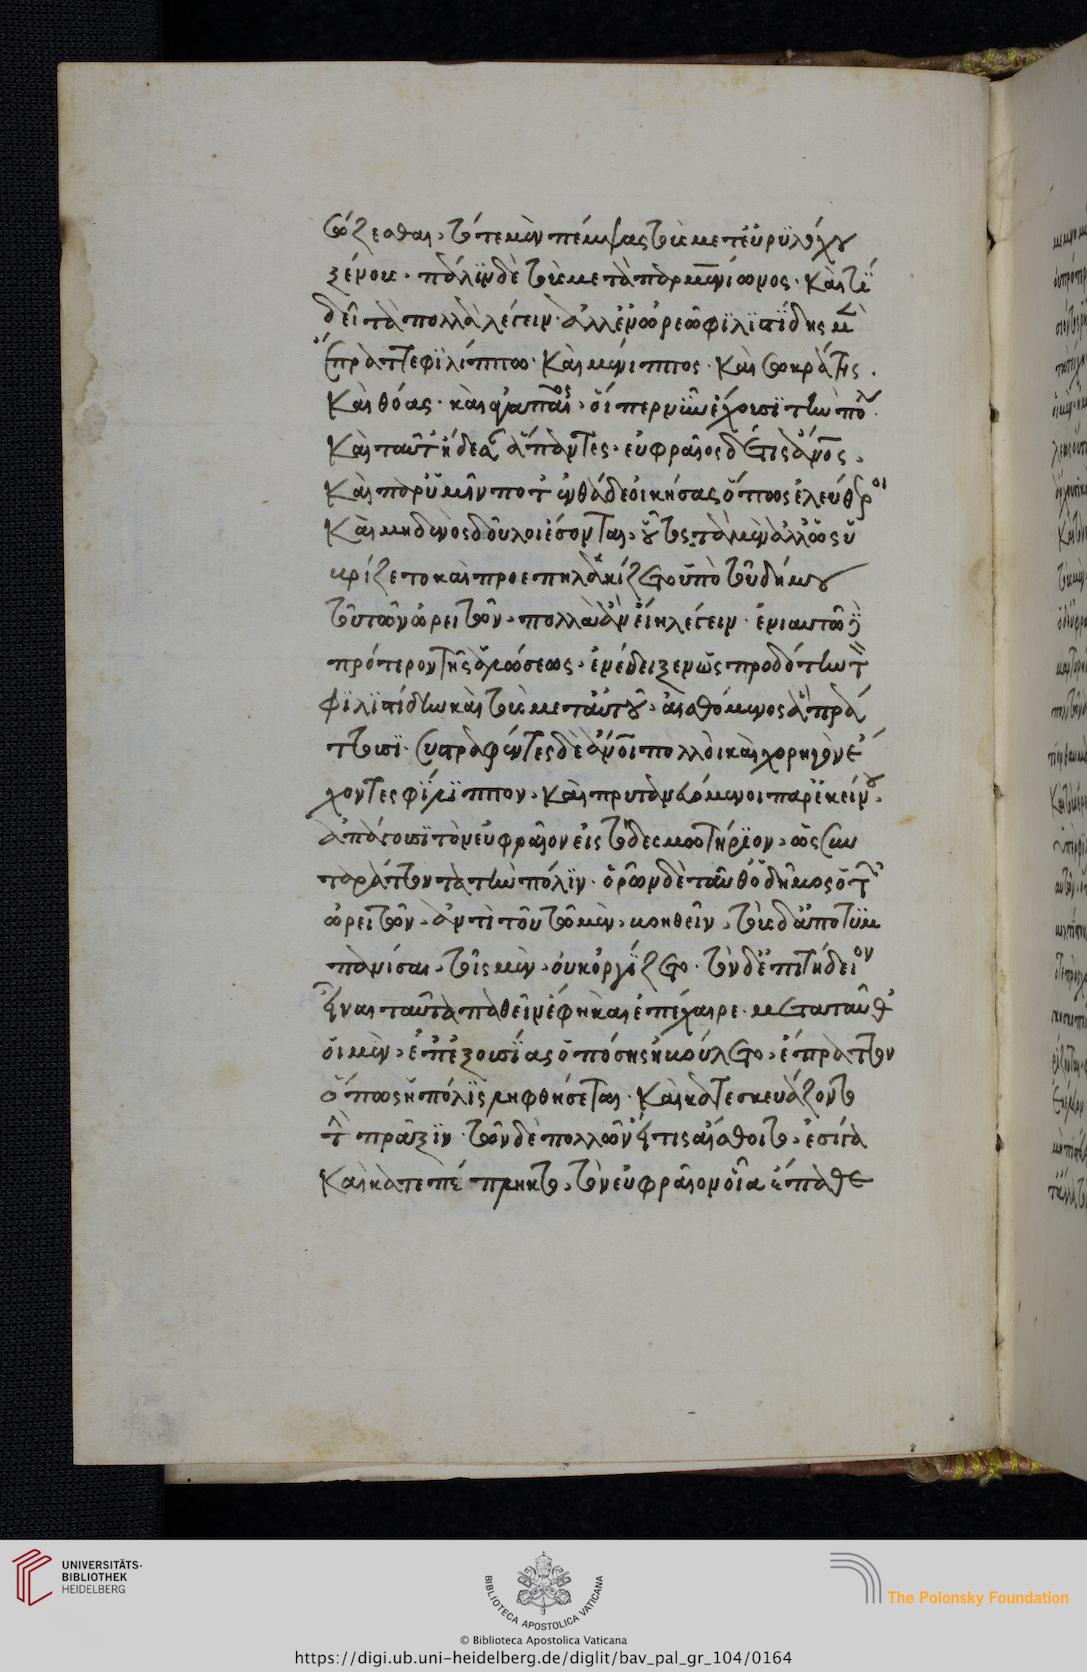 σώζεσθαι, τότε μὲν πέμψας τοὺς μετ' εὐρϋλόχου
ξένους. πάλϊν δὲ τοὺς μετὰ παρμενίωνος. καὶ τί
δεῖ τὰ πολλὰ λέγειν. ἀλλ' ἐν ὠρεῶ φϊλϊστίδης μὲν
ἔπραττε φϊλίππω. καὶ μένιππος. καὶ σωκράτης.
καὶ θόας. καὶ ἀγαπαῖος, οἵπερ νῦν ἔχουσϊ τὴν πόλιν.
καὶ ταῦτ' ἤδεσαν ἅπαντες. εὐφραῖος δέ τις ἄνος,
καὶ παρ' ὑμῖν ποτ' ἐνθάδε οἰκήσας ὅπως ἐλεύθεροι
καὶ μηδενὸς δοῦλοι ἔσονται, οὗτος τὰ μὲν ἄλλ' ὡς ὕ
βρίζετο καὶ προεπηλακίζετο ὑπὸ τοῦ δήμου
τοῦ τῶν ὠρειτῶν, πολλὰ ἂν εἴη λέγειν. ἐνιαυτῶ δὲ
πρότερον τῆς ἁλώσεως, ἐνέδειξεν ὡς προδότην τὸν
φϊλϊστίδην καὶ τοὺς μετ' αὐτοῦ, αἰσθόμενος ἃ πρά
ττουσϊ. συστραφέντες δὲ ἄνοι πολλοὶ καὶ χορηγὸν ἔ
χοντες φίλϊππον, καὶ πρυτανευόμενοι παρ' ἐκείνου,
ἀπάγουσϊ τὸν εὐφραῖον εἰς τὸ δεσμωτήρϊον, ὡς συν
ταράττοντα τὴν πόλϊν. ὁρῶν δὲ ταῦθ' ὁ δῆμος ὁ τῶν
ὠρειτῶν, ἀντὶ τοῦ τῶ μὲν, βοηθεῖν, τοὺς δ' ἀποτυμ
πανίσαι, τοῖς μὲν, οὐκ ὠργίζετο. τὸν δ' ἐπιτήδειον
εἶναι ταῦτα παθεῖν ἔφη καὶ ἐπέχαιρε. μετα ταῦθ'
οἱ μὲν, ἐπ' ἐξουσίας ὁπόσης ἠβούλετο, ἔπραττον
ὅπως ἡ πόλϊς ληφθήσεται. καὶ κατεσκευάζοντο
τὴν πρᾶξϊν. τῶν δὲ πολλῶν εἴ τις αἴσθοιτο, ἐσίγα
καὶ κατεπέπληκτο, τὸν εὐφραῖον οἷα ἔπαθε
UNIVERSITÄTS-
BIBLIOTHEK
HEIDELBERG
BIBLIOTECA APOSTOLICA VATICANA
The Polonsky Foundation
© Biblioteca Apostolica Vaticana
https://digi.ub.uni-heidelberg.de/diglit/bav_pal_gr_104/0164